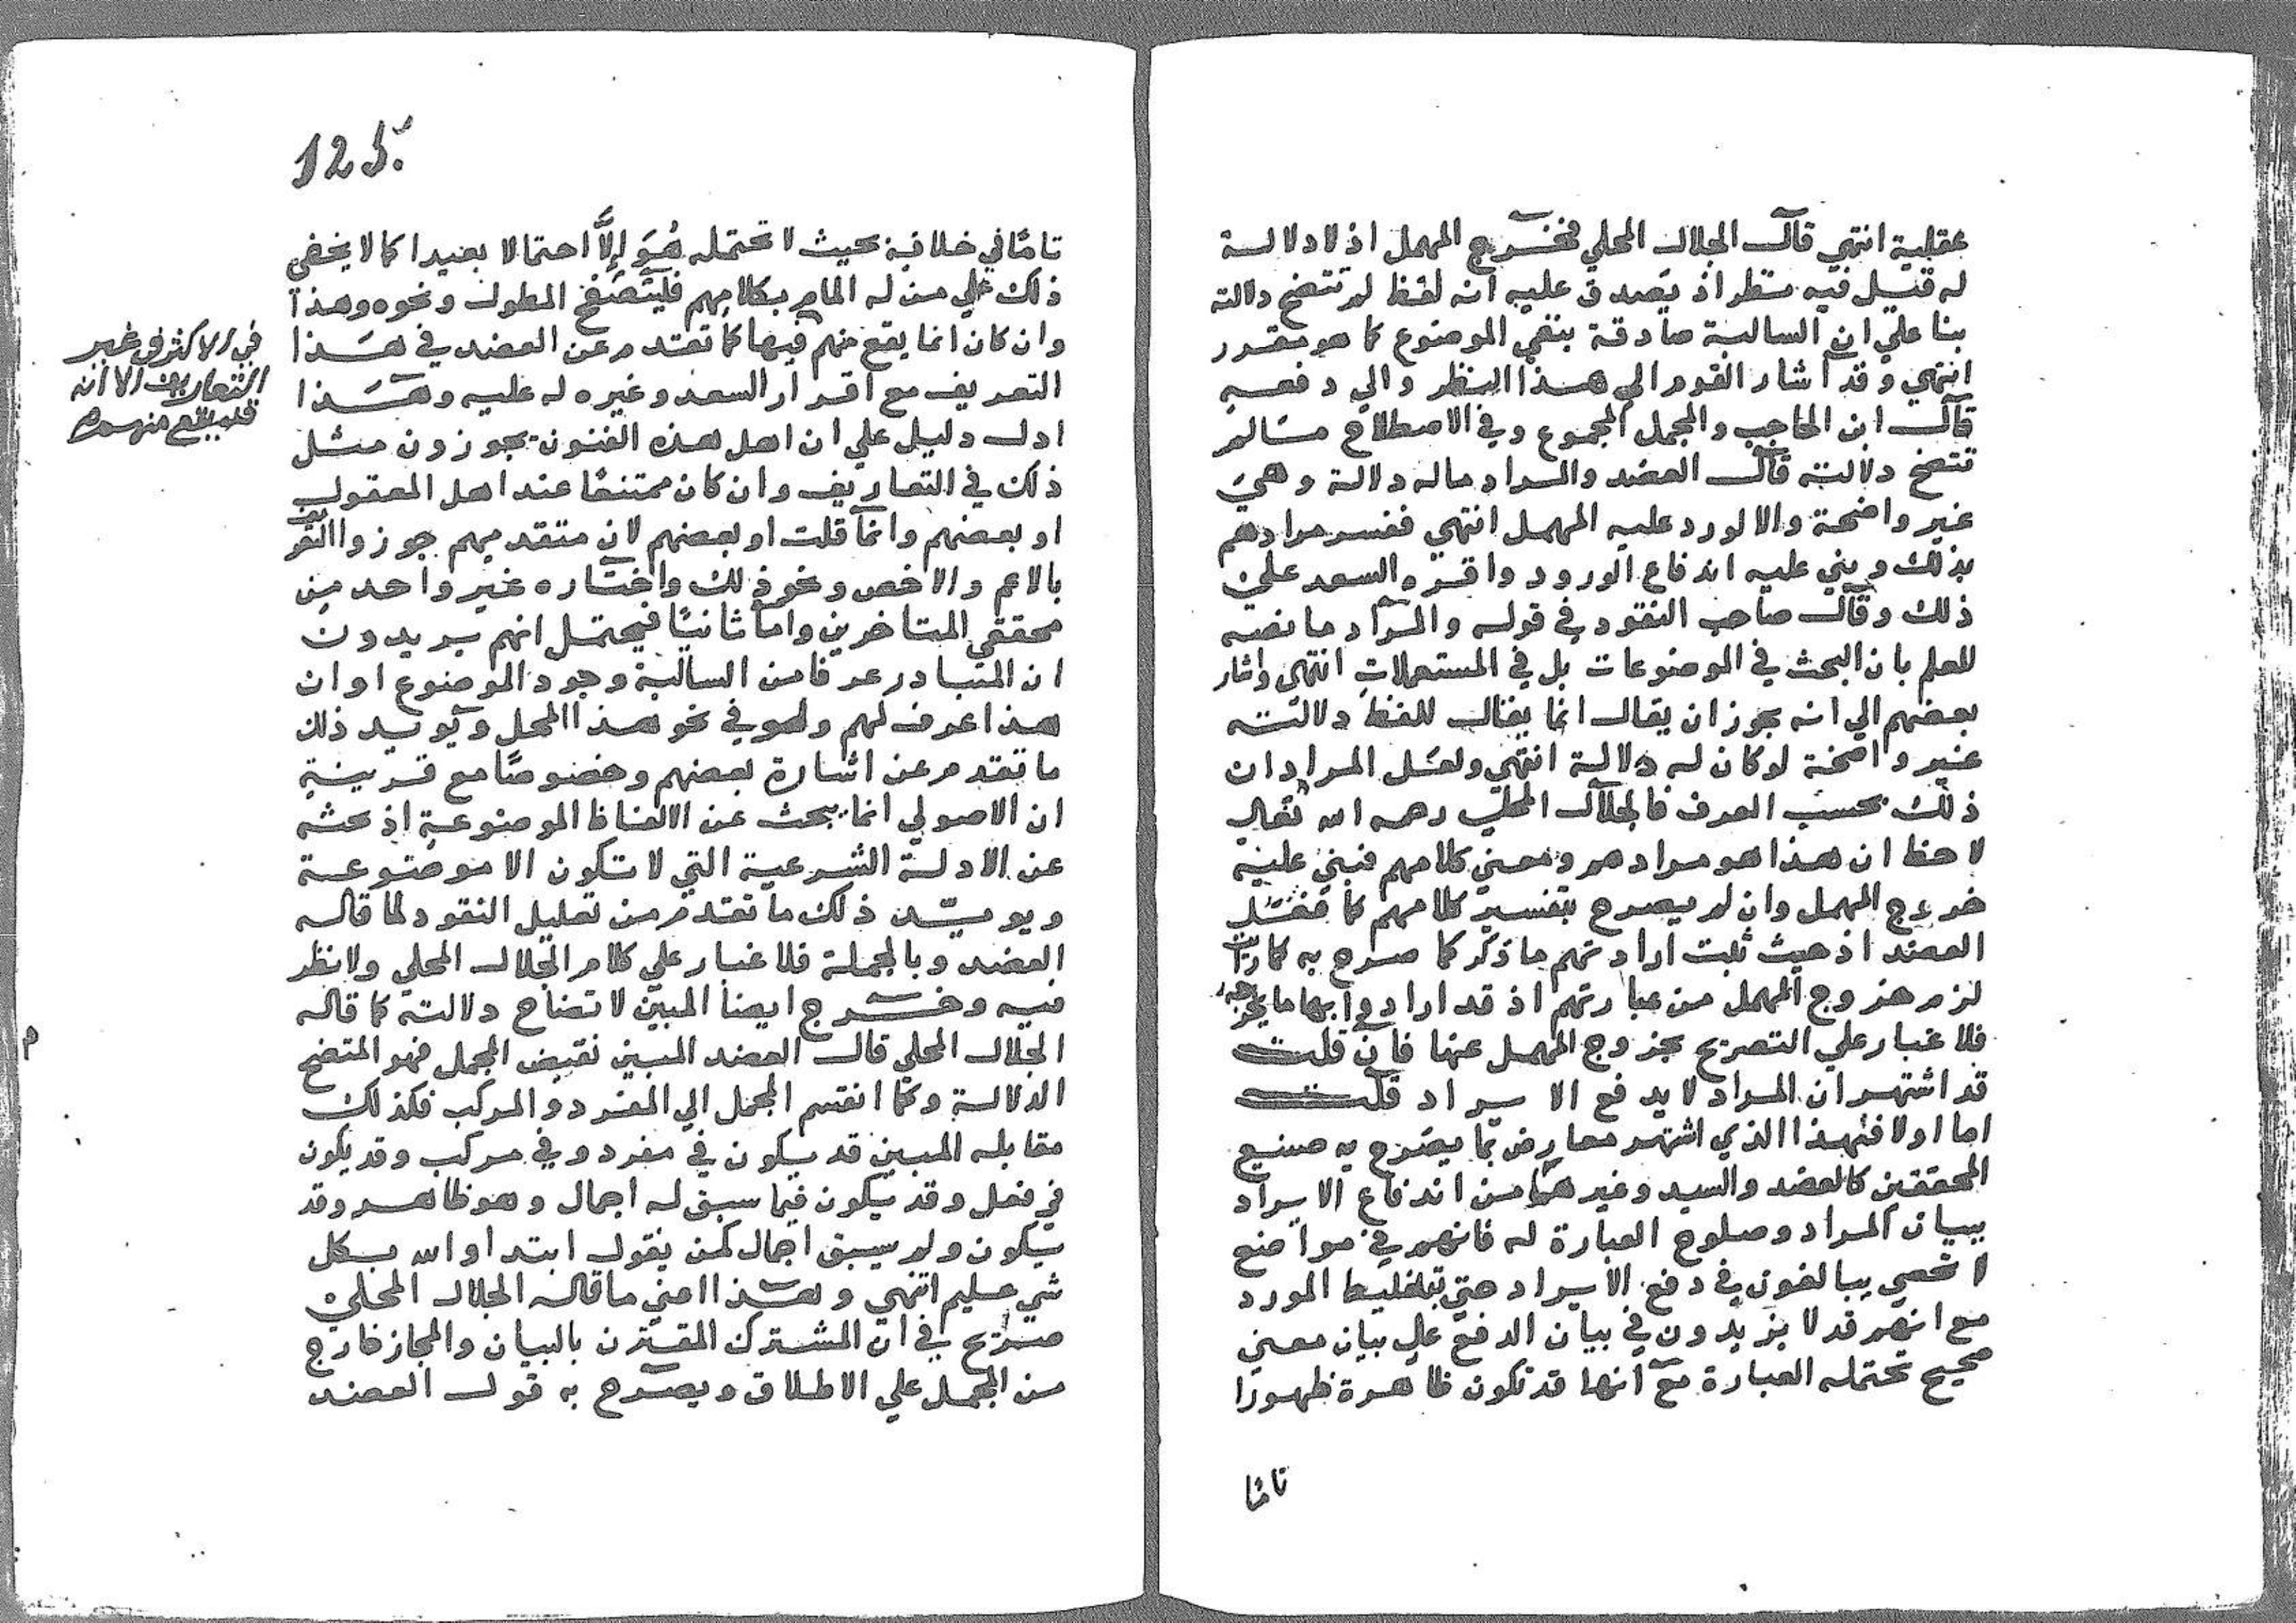 عقلية انتهي قال الجلال المحلي فخرج المهمل اذ لا دلالة
له قيل فيه نظر اذ يصدق عليه انه لفظ لم تتضح دلالته
بنا علي ان السالبة صادقة بنفي الموضوع كما هو مقرر
انتهي وقد اشار القوم الي هذا النظر والي دفعه
قال ابن الحاجب والمجمل المجموع وفي الاصطلاح ما لم
تتضح دلالته قال العضد والمراد ماله دلالة وهي
غير واضحة والا لورد عليه المهمل انتهي ففسر مرادهم
بذلك وبني عليه اندفاع الورود واقره السعد علي
ذلك وقال صاحب النقود في قوله والمراد ما نصه
للعلم بان البحث في الموضوعات بل في المستعملات انتهي واشار
بعضهم الي انه يجوز ان يقال انما يقال للفظ دلالته
غير واضحة لو كان له دلالة انتهي ولعل المراد ان
ذلك بحسب العرف فالجلال المحلي رحمه الله تعالي
لاحظ ان هذا هو مرادهم ومعني كلامهم فبني عليه
خروج المهمل وان لم يصرح بتفسير كلامهم كما فعل
العضد اذ حيث ثبت ارادتهم ما ذكر كما صرح به كما رايت
لزم خروج المهمل من عبارتهم اذ قد ارادوا بها ما يخرجه
فلا غبار علي التصريح بخروج المهمل عنها فان قلت
قد اشتهر ان المراد لا يدفع الايراد قلت
اما اولا فهذا الذي اشتهر معارض بما يصرح به صنيع
المحققين كالعضد والسيد وغيرهما من اندفاع الايراد
ببيان المراد وصلوح العبارة له فانهم في مواضع
لا تحصي يبالغون في دفع الايراد حتي بتغليط المورد
مع انهم قد لا يزيدون في بيان الدفع علي بيان معني
صحيح تحتمله العبارة مع انها قد تكون ظاهرة ظهورا
تاما
125
تاما في خلافه بحيث لا تحتمله هو إلا احتمالا بعيدا كما لا يخفي
ذلك علي من له المام بكلامهم فليتصفح المطول ونحوه وهذا
وان كان انما يقع منهم فيها كما تقدم عن العضد في هذا
التعريف مع اقرار السعد وغيره له عليه وهذا
ادل دليل علي ان اهل هذه الفنون يجوزون مثل
ذلك في التعاريف وان كان ممتنعا عند اهل المعقول
او بعضهم وانما قلت او بعضهم لان متقدميهم جوزوا التعريف
بالاعم والاخص ونحو ذلك واختاره غير واحد من
محققي المتاخرين واما ثانيا فيحتمل انهم يريدون
ان المتبادر عرفا من السالبة وجود الموضوع او ان
هذا عرف لهم ولو في نحو هذا المحل ويويد ذلك
ما تقدم عن اشارة بعضهم وخصوصا مع قرينة
ان الاصولي انما يبحث عن الالفاظ الموضوعة اذ بحثه
عن الادلة الشرعية التي لا تكون الا موضوعة
ويويد ذلك ما تقدم من تعليل النقود لما قاله
العضد وبالجملة فلا غبار علي كلام الجلال المحلي ولا نظر
فيه وخرج ايضا المبين لاتضاح دلالته كما قاله
الجلال المحلي قال العضد المبين نقيض المجمل فهو المتضح
الدلالة وكما انقسم المجمل الي المفرد والمركب فكذلك
مقابله المبين قد يكون في مفرد وفي مركب وقد يكون
في فعل وقد يكون فيما سبق له اجمال وهو ظاهر وقد
يكون ولم يسبق اجمال كمن يقول ابتدا والله بكل
شي عليم انتهي وهذا اعني ما قاله الجلال المحلي
صريح في ان المشترك المقترن بالبيان والمجاز خارج
من المجمل علي الاطلاق ويصرح به قول العضد
في الاكثر في غير
التعاريف الا انه
قد يقع منهم
م